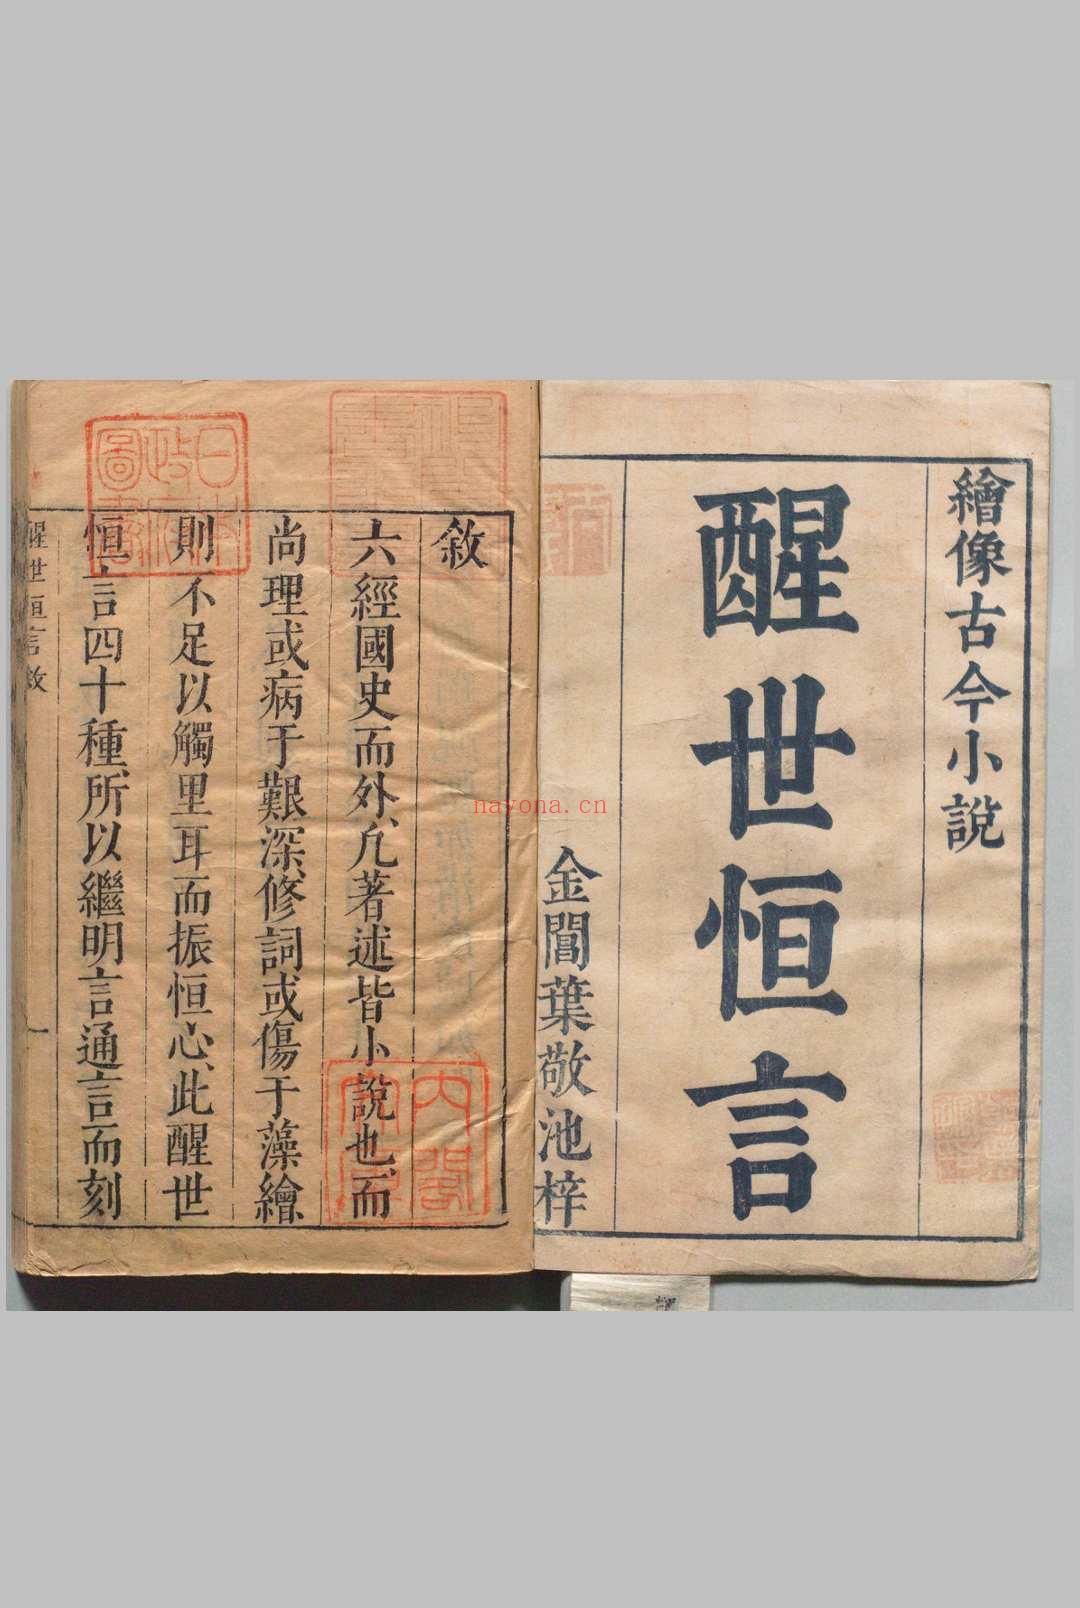 繪像古今小說
醒世恒言
金閶葉敬池梓
敘
六經國史而外、凡著述皆小說也、而
尚理或病于艱深、修詞或傷于藻繪
則不足以觸里耳而振恒心、此醒世
恒言四十種、所以繼明言通言而刻
醒世恒言敘
一
日本政府圖書
內閣文庫
nayona.cn